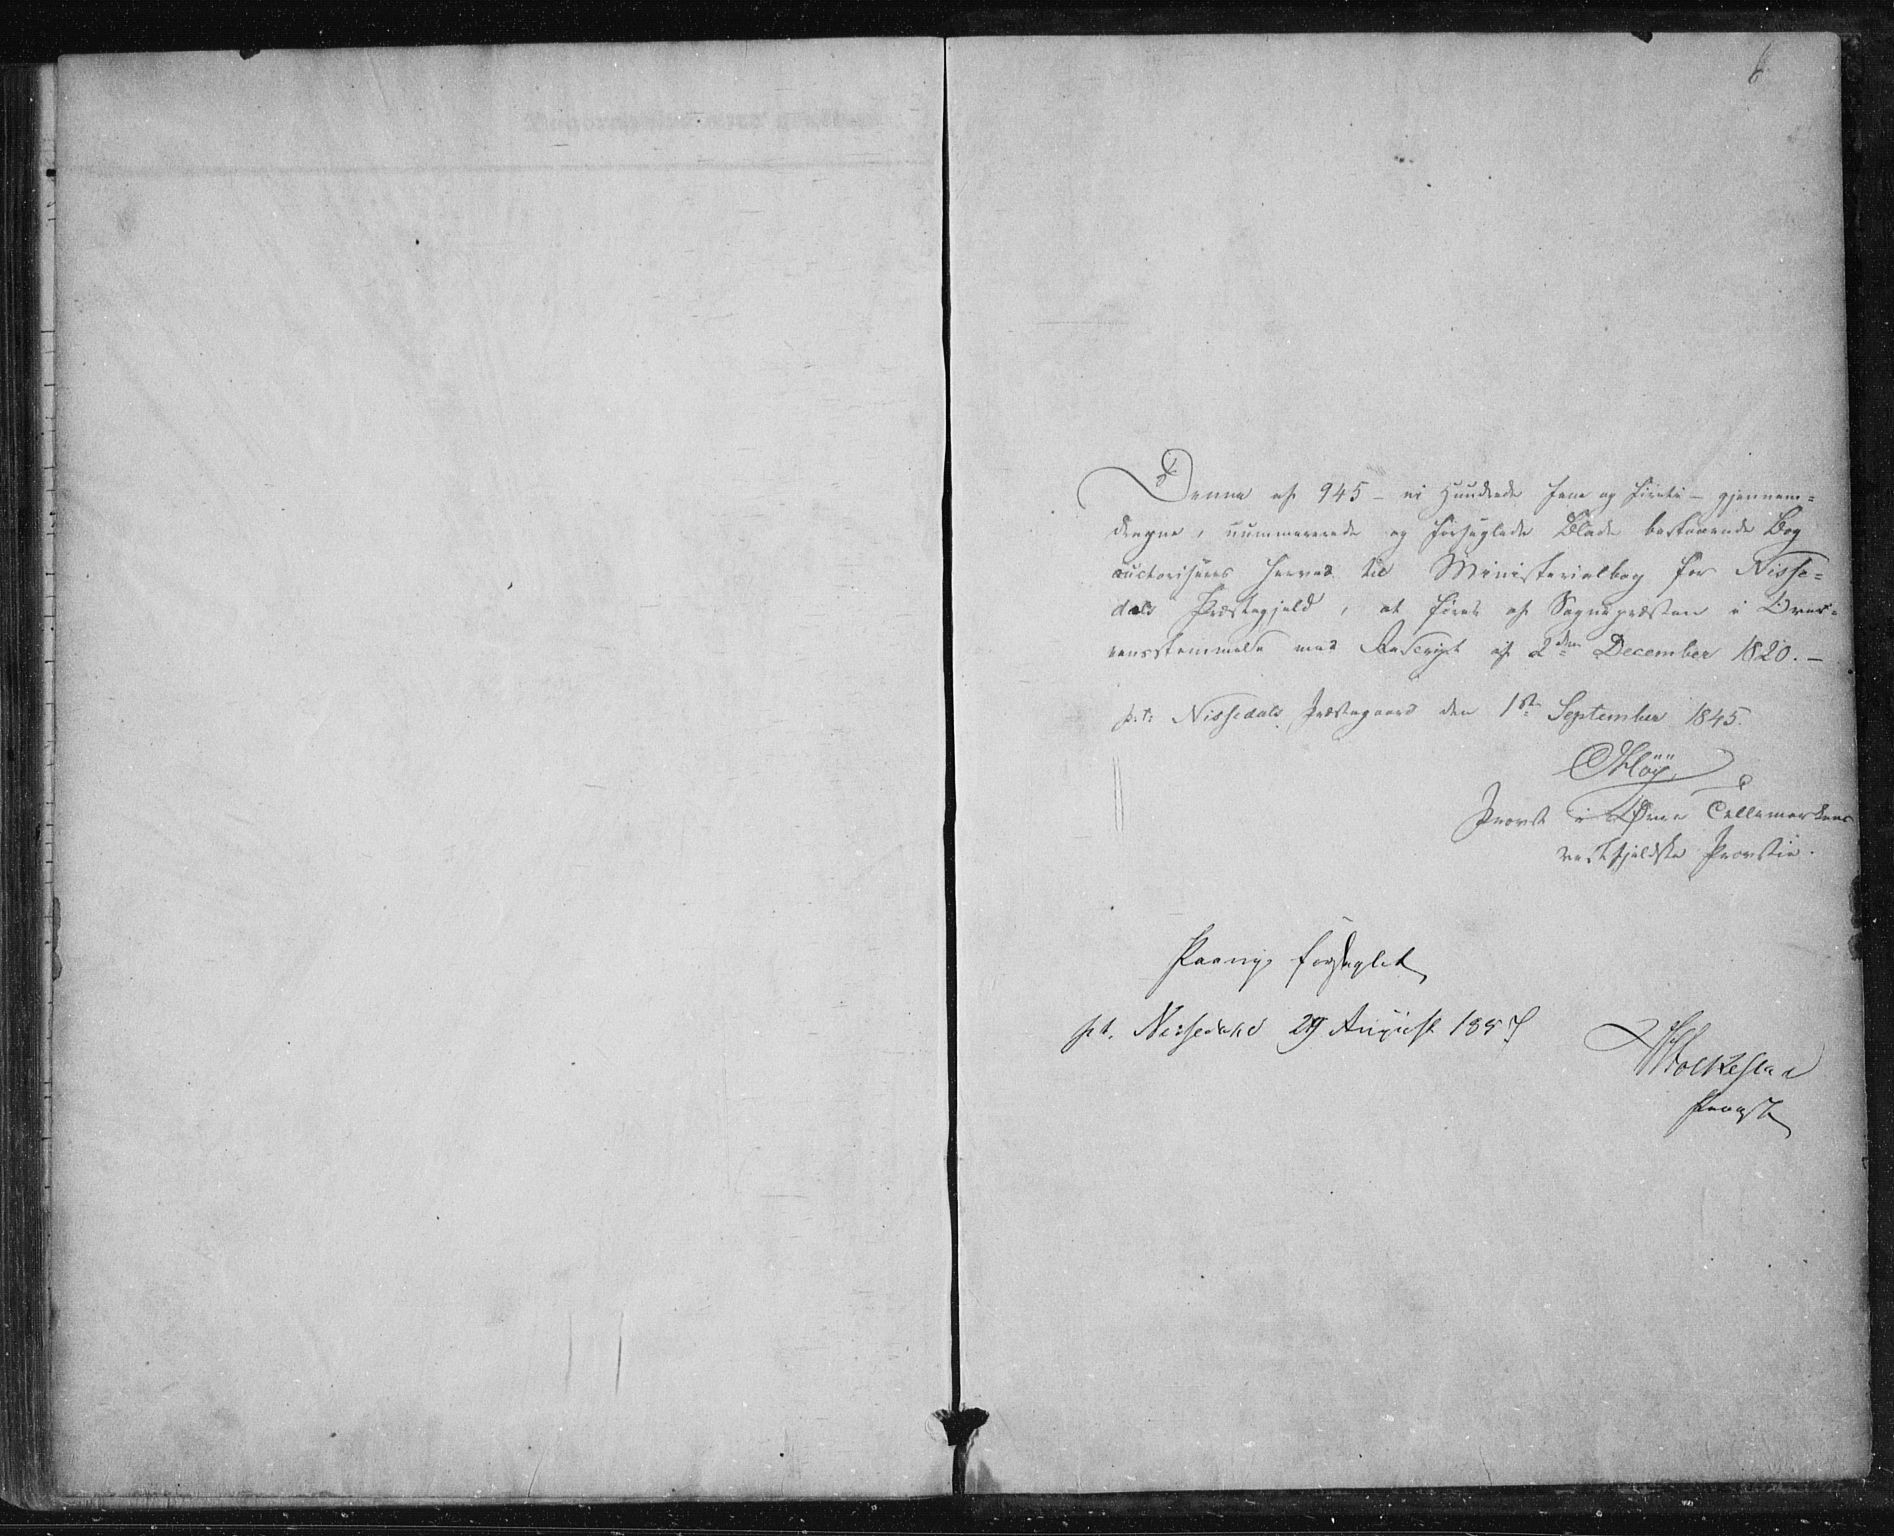 Denne af 945 – ni Hundrede Fem og fireti – gjennem=
dragne, nummererede og forseglede Blade bestaaende Bog
auctoriseres herved til Ministerialbog for Nisse=
dals Præstegjeld, at føres af Sognepræsten i Over=
eensstemmelse med Rescript af 2den December 1820. –
p.t: Nissedals Præstegaard den 1ste September 1845.
Provst i Øvre Tellemarkens
vestfjeldske Provstie.
Paany forseglet
pt. Nissedal 29 August 1857
Provst